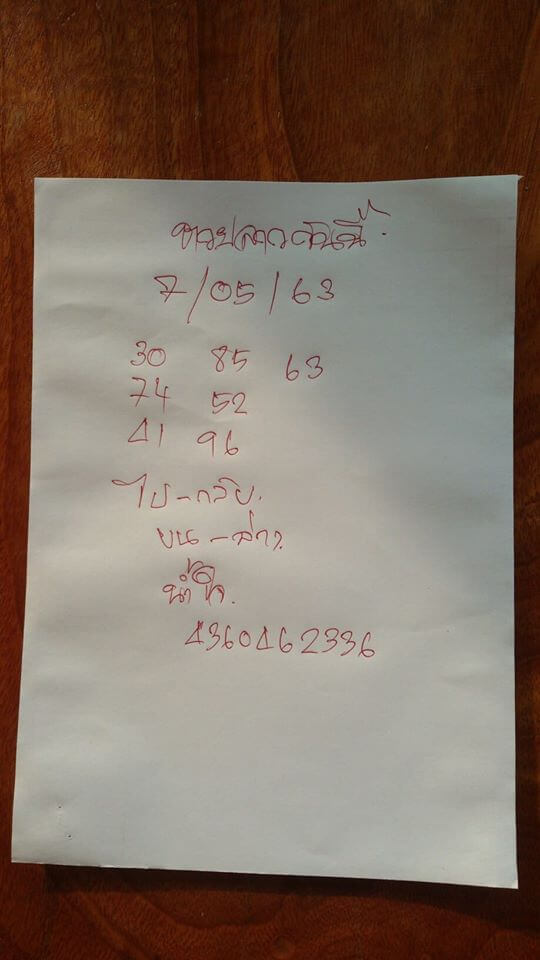 หวยลาววันนี้.
7/05/63
30 85 63
74 52
41 96
ไป-กลับ.
บน-ล่าง
น้ำใจ.
4360462336